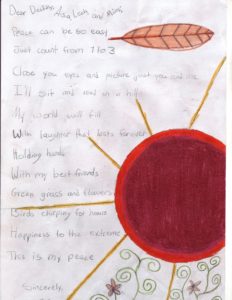 Dear
Peace can be so easy
Just count from 1 to 3
Close you eyes and picture just you and me
I'll sit and rest on a hill
My world will fill
With laughter that lasts forever
Holding hands
With my best friends
Green grass and flowers
Birds chirping for hours
Happiness to the extreme
This is my peace
Sincerely,